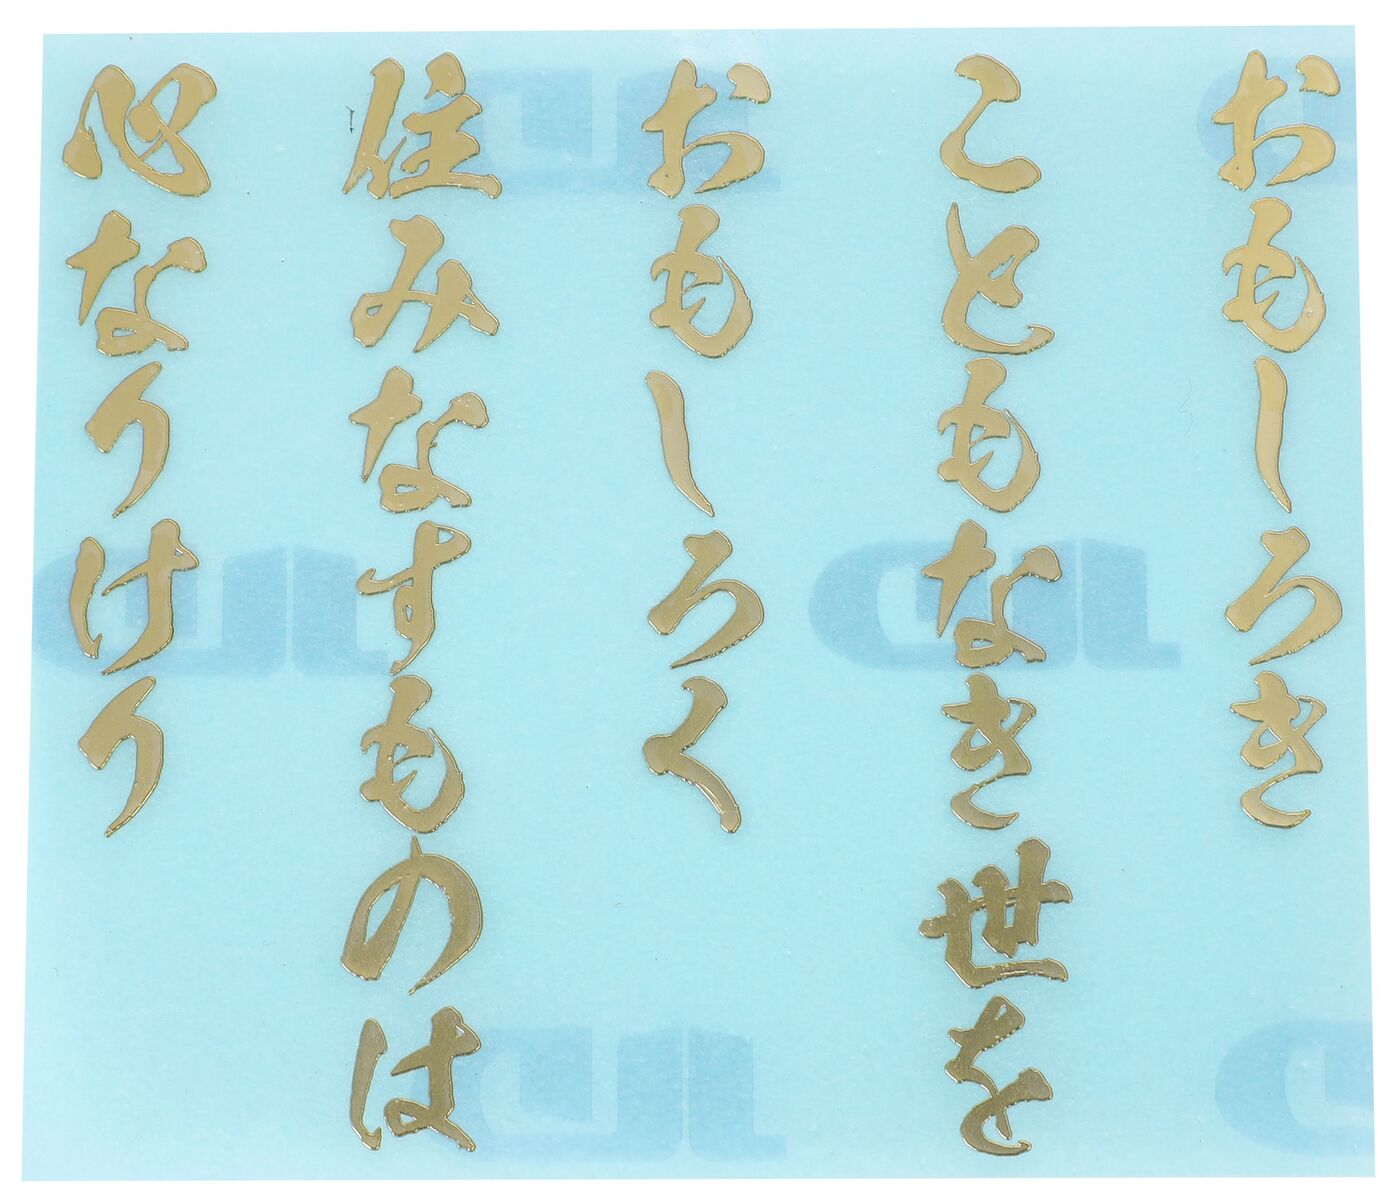 おもしろき
こともなき世を
おもしろく
住みなすものは
心なりけり